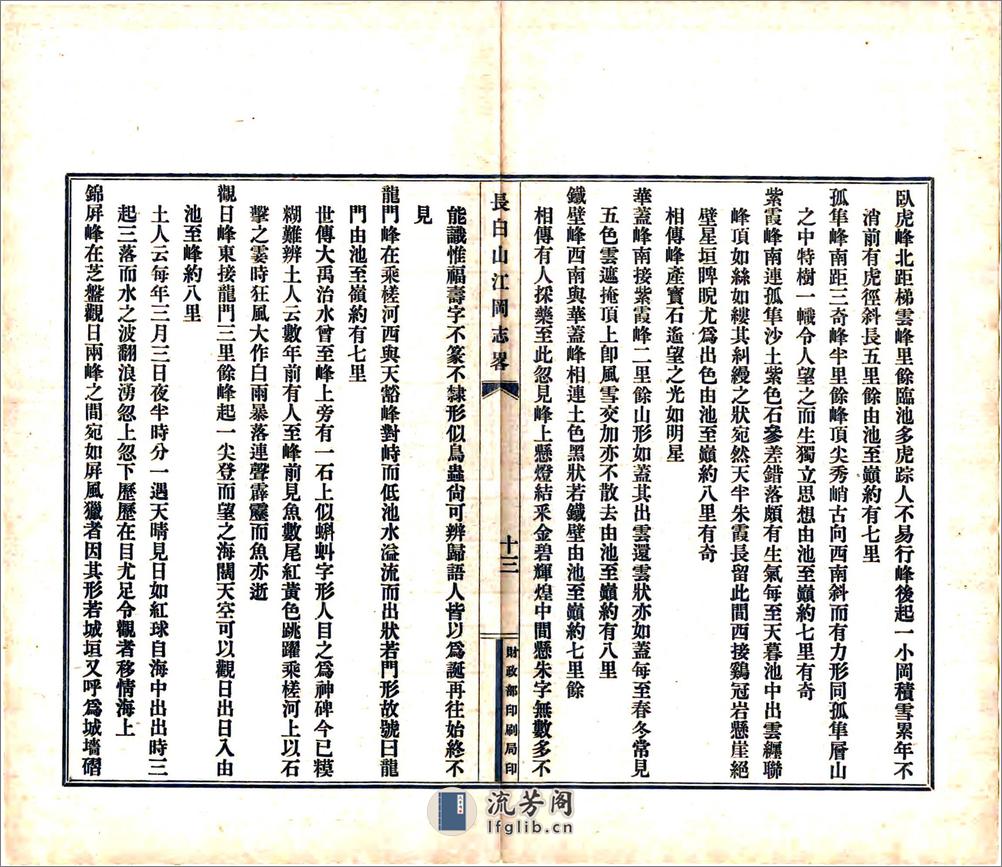 臥虎峰北距梯雲峰里餘臨池多虎踪人不易行峰後起一小岡積雪累年不
消前有虎徑斜長五里餘由池至巔約有七里
孤隼峰南距三奇峰半里餘峰頂尖秀峭古向西南斜而有力形同孤隼層山
之中特樹一幟令人望之而生獨立思想由池至巔約七里有奇
紫霞峰南連孤隼沙土紫色石參差錯落頗有生氣每至天暮池中出雲纒聯
峰頂如絲如縷其糾縵之狀宛然天半朱霞長留此間西接鷄冠岩懸崖絕
壁星垣睥睨尤爲出色由池至巔約八里有奇
相傳峰產寶石遙望之光如明星
華蓋峰南接紫霞峰二里餘山形如蓋其出雲還雲狀亦如蓋每至春冬常見
五色雲遮掩頂上卽風雪交加亦不散去由池至巔約有八里
鐵壁峰西南與華蓋峰相連土色黑狀若鐵壁由池至巔約七里餘
相傳有人採藥至此忽見峰上懸燈結釆金碧輝煌中間懸朱字無數多不
長白山江岡志畧
十三
財政部印刷局印
能識惟福壽字不篆不隸形似鳥蟲尙可辨歸語人皆以爲誕再往始終不
見
龍門峰在乘槎河西與天豁峰對峙而低池水溢流而出狀若門形故號曰龍
門由池至嶺約有七里
世傳大禹治水曾至峰上旁有一石上似蝌蚪字形人目之爲神碑今已糢
糊難辨土人云數年前有人至峰前見魚數尾紅黃色跳躍乘槎河上以石
擊之霎時狂風大作白雨暴落連聲霹靂而魚亦逝
觀日峰東接龍門三里餘峰起一尖登而望之海闊天空可以觀日出日入由
池至峰約八里
土人云每年三月三日夜半時分一遇天晴見日如紅球自海中出出時三
起三落而水之波翻浪湧忽上忽下歷歷在目尤足令觀者移情海上
錦屛峰在芝盤觀日兩峰之間宛如屏風獵者因其形若城垣又呼爲城墻磖
流芳阁
lfglib.cn